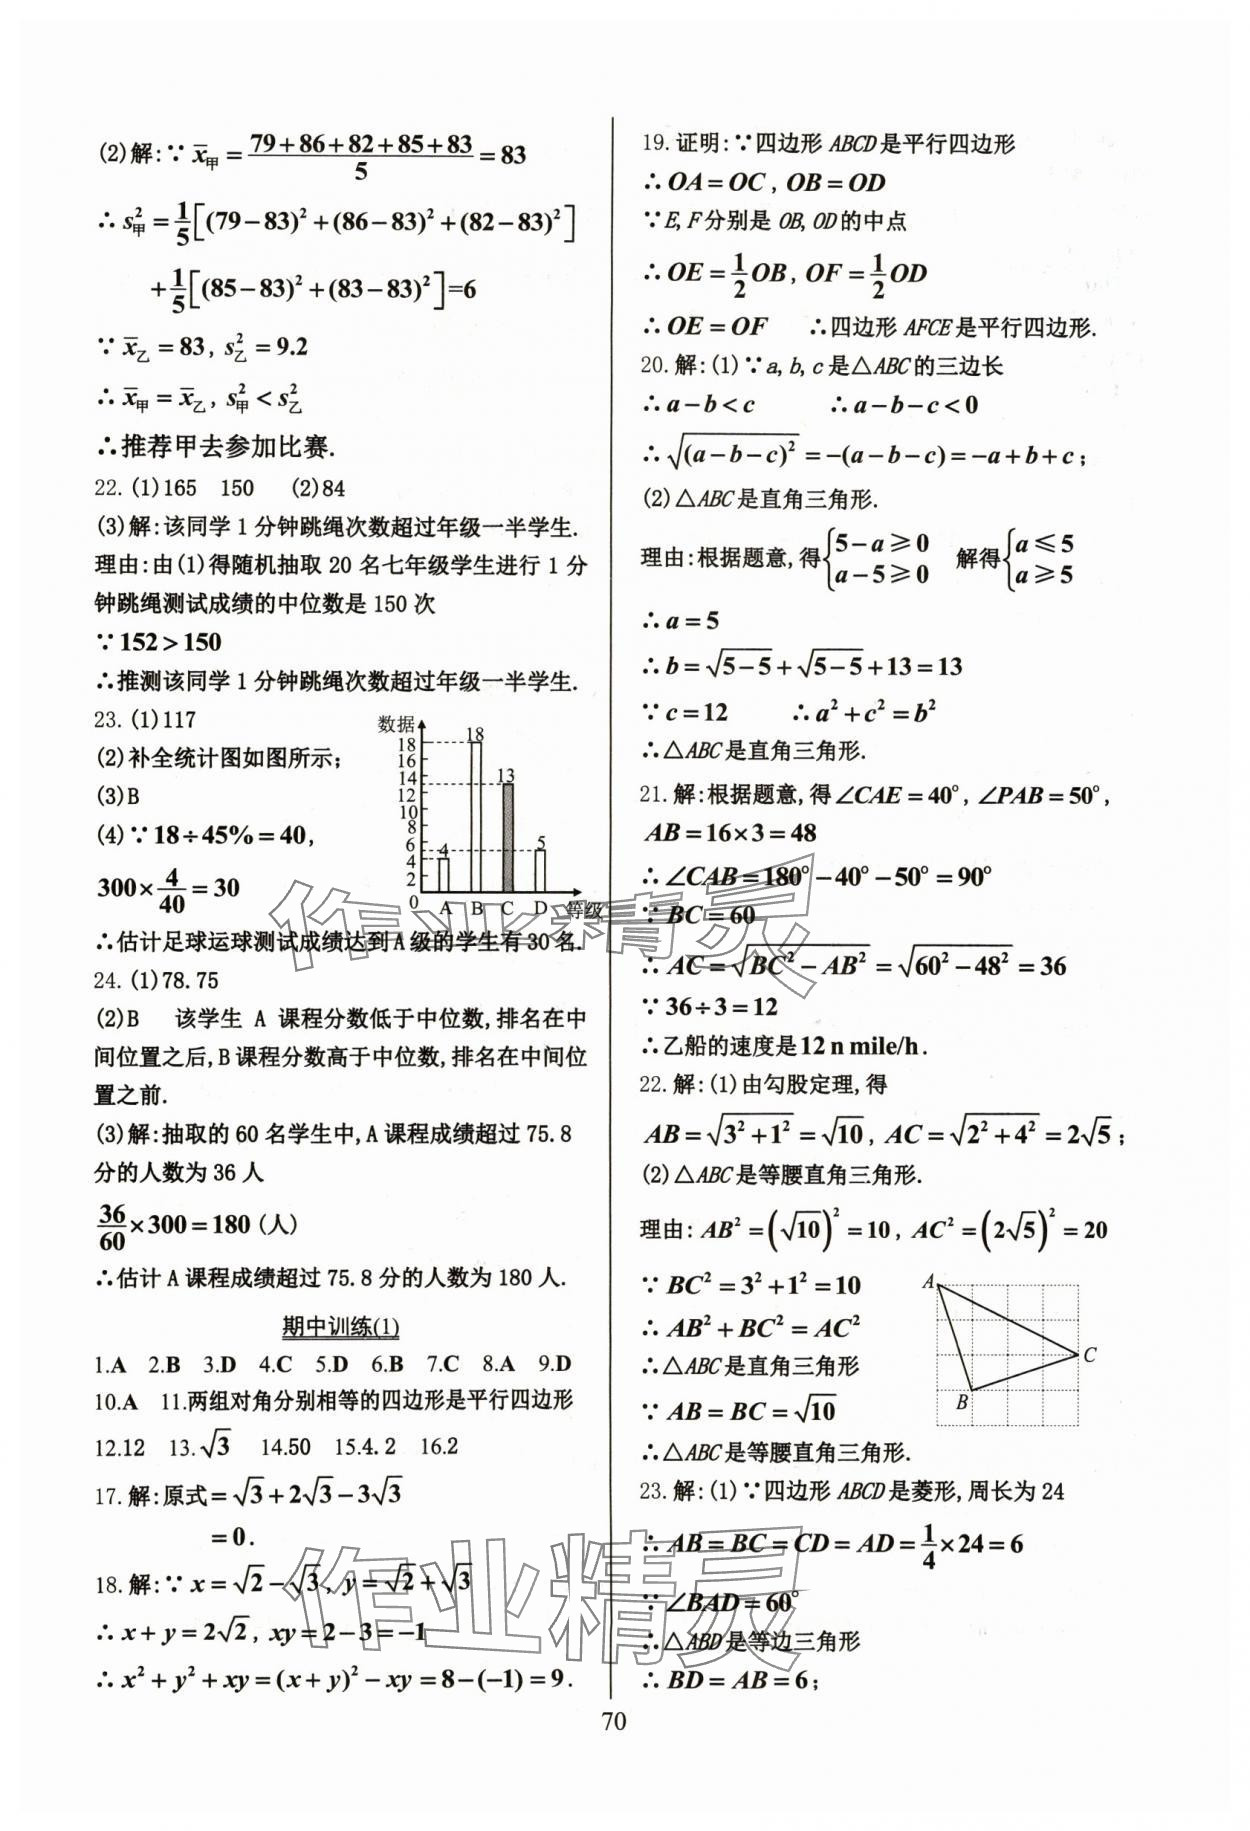 (2)解:∵ x̄甲 = (79+86+82+85+83)/5 = 83
∴ s²甲 = 1/5[(79−83)²+(86−83)²+(82−83)²]
+1/5[(85−83)²+(83−83)²]=6
∵ x̄乙 = 83, s²乙 = 9.2
∴ x̄甲 = x̄乙, s²甲 < s²乙
∴推荐甲去参加比赛.
22.(1)165 150 (2)84
(3)解:该同学1分钟跳绳次数超过年级一半学生.
理由:由(1)得随机抽取20名七年级学生进行1分
钟跳绳测试成绩的中位数是150次
∵152>150
∴推测该同学1分钟跳绳次数超过年级一半学生.
23.(1)117
(2)补全统计图如图所示;
(3)B
(4)∵18÷45%=40,
300×4/40=30
数据
18
16
14
12
10
8
6
4
2
0
4 18 13 5
A B C D 等级
∴估计足球运球测试成绩达到A级的学生有30名.
24.(1)78.75
(2)B 该学生 A 课程分数低于中位数,排名在中
间位置之后,B课程分数高于中位数,排名在中间位
置之前.
(3)解:抽取的60名学生中,A课程成绩超过75.8
分的人数为36人
36/60×300=180(人)
∴估计A课程成绩超过75.8分的人数为180人.
期中训练(1)
1.A 2.B 3.D 4.C 5.D 6.B 7.C 8.A 9.D
10.A 11.两组对角分别相等的四边形是平行四边形
12.12 13.√3 14.50 15.4.2 16.2
17.解:原式=√3+2√3−3√3
=0.
18.解:∵x=√2−√3, y=√2+√3
∴x+y=2√2, xy=2−3=−1
∴x²+y²+xy=(x+y)²−xy=8−(−1)=9.
19.证明:∵四边形ABCD是平行四边形
∴OA=OC, OB=OD
∵E,F分别是OB,OD的中点
∴OE=1/2OB, OF=1/2OD
∴OE=OF ∴四边形AFCE是平行四边形.
20.解:(1)∵a,b,c是△ABC的三边长
∴a−b<c ∴a−b−c<0
∴√(a−b−c)²=−(a−b−c)=−a+b+c;
(2)△ABC是直角三角形.
理由:根据题意,得{5−a≥0 a−5≥0 解得{a≤5 a≥5
∴a=5
∴b=√(5−5)+√(5−5)+13=13
∵c=12 ∴a²+c²=b²
∴△ABC是直角三角形.
21.解:根据题意,得∠CAE=40°, ∠PAB=50°,
AB=16×3=48
∴∠CAB=180°−40°−50°=90°
∵BC=60
∴AC=√(BC²−AB²)=√(60²−48²)=36
∵36÷3=12
∴乙船的速度是12 n mile/h.
22.解:(1)由勾股定理,得
AB=√(3²+1²)=√10, AC=√(2²+4²)=2√5;
(2)△ABC是等腰直角三角形.
理由:AB²=(√10)²=10, AC²=(2√5)²=20
∵BC²=3²+1²=10
∴AB²+BC²=AC²
∴△ABC是直角三角形
∵AB=BC=√10
∴△ABC是等腰直角三角形.
A
B
C
23.解:(1)∵四边形ABCD是菱形,周长为24
∴AB=BC=CD=AD=1/4×24=6
∵∠BAD=60°
∴△ABD是等边三角形
∴BD=AB=6;
作业精灵
作业精灵
70